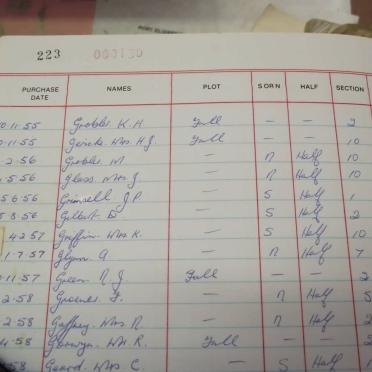 223 000130
PURCHASE DATE NAMES PLOT S OR N HALF SECTION
11.55 Grobler K.H. Full — — 2
11.55 Mrs H.J. Full — — 10
2.56 Grobler M. — N Half 10
5.56 Glass Mrs J — N Half 10
6.56 J.P. — S Half 1
8.56 Gilbert E — S Half 2
4.2.57 Griffin Mrs K. — S Half 10
1.7.57 Glynn A. — N Half 7
11.57 Green N.J. Full — — 2
2.58 F. — N Half 5
2.58 Gaffney Mrs N — N Half 2
4.58 Mrs R. Full — —
58 Mrs C. — S Half 1